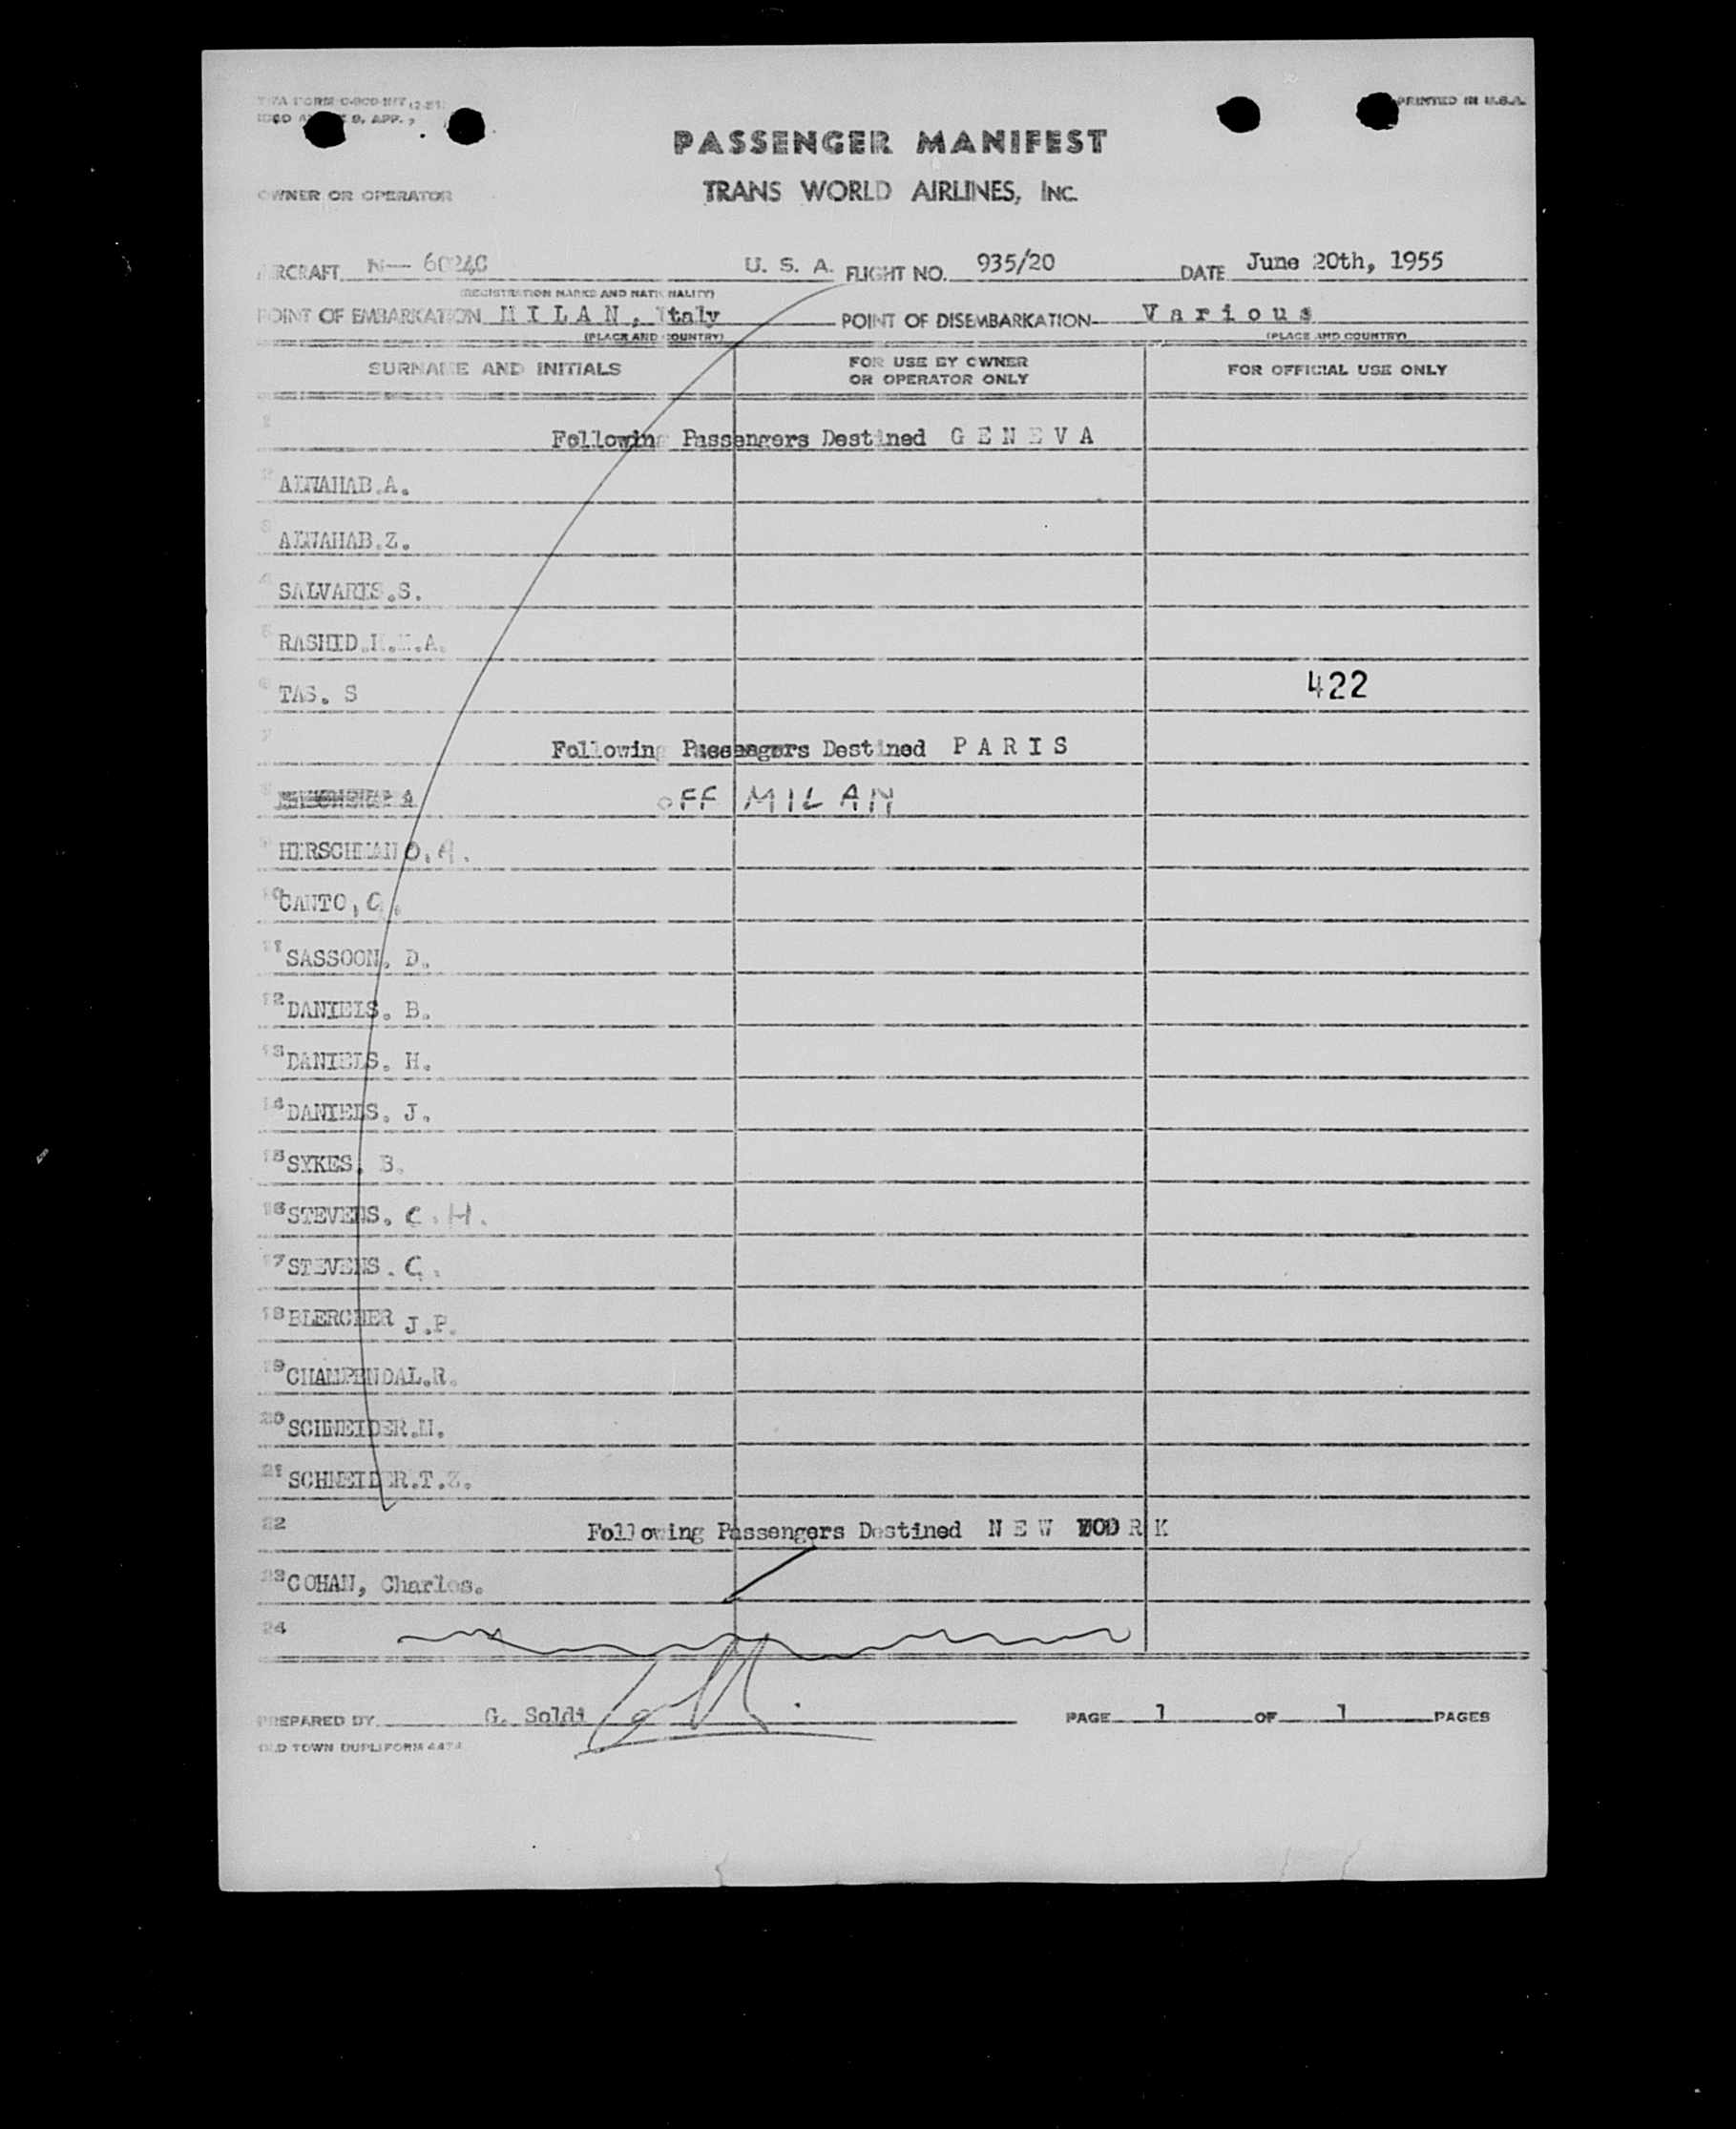 PRINTED IN U.S.A.
PASSENGER MANIFEST
OWNER OR OPERATOR TRANS WORLD AIRLINES, INC.
AIRCRAFT N— 6024C U. S. A. FLIGHT NO. 935/20 DATE June 20th, 1955
(REGISTRATION MARKS AND NATIONALITY)
POINT OF EMBARKATION M I L A N , Italy POINT OF DISEMBARKATION V a r i o u s
(PLACE AND COUNTRY) (PLACE AND COUNTRY)
SURNAME AND INITIALS FOR USE BY OWNER OR OPERATOR ONLY FOR OFFICIAL USE ONLY
Following Passengers Destined G E N E V A
2 ALWAHAB.A.
3 ALWAHAB.Z.
4 SALVARIS.S.
5 RASHID
6 TAS. S 422
7 Following Passengers Destined P A R I S
8 OFF MILAN
9 HIRSCHMAN O.A.
10 CANTO, C.
11 SASSOON. D.
12 DANIELS. B.
13 DANIELS. H.
14 DANIELS. J.
15 SYKES. B.
16 STEVENS. C.H.
17 STEVENS. C.
18 BLERCHER J.P.
19 CHAMPENDAL.R.
20 SCHNEIDER.M.
21 SCHNEIDER.T.Z.
22 Following Passengers Destined N E W YOR K
23 COHAN, Charles.
24
PREPARED BY G. Soldi PAGE 1 OF 1 PAGES
OLD TOWN DUPLIFORM